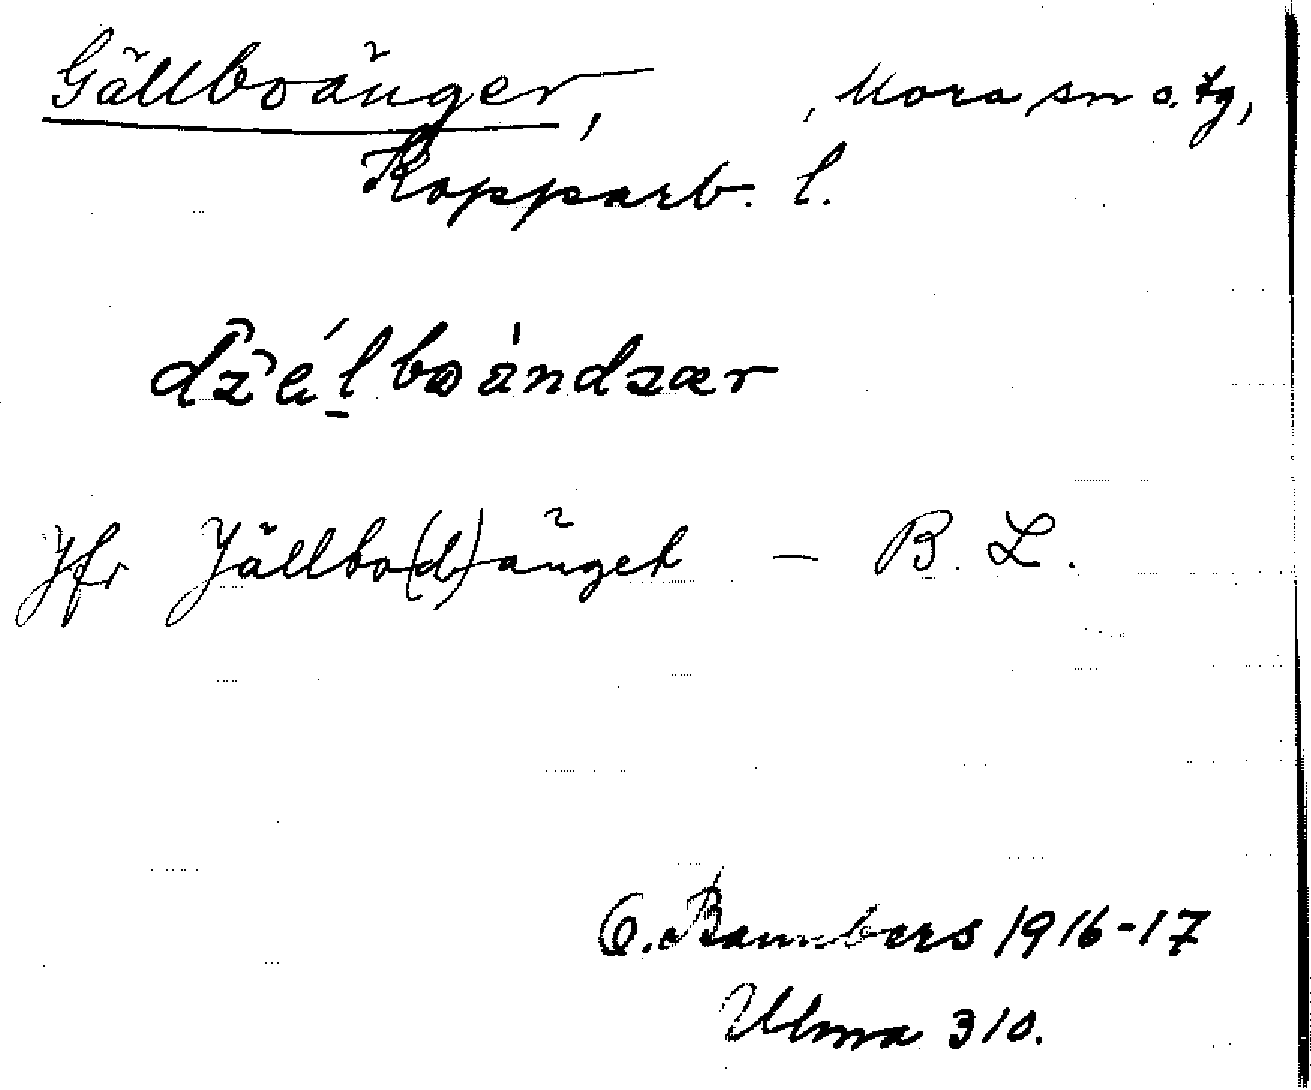 Gällboänger, , Mora sn o. tg,
Kopparb. l.
dz̄élboándzær
Jfr Jällbo(d)änget – B. L.
O. Bannbers 1916-17
Ulma 310.